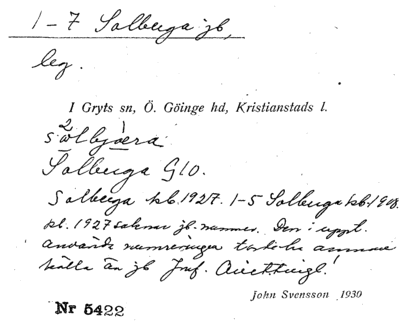 1-7 Solberga jb,
leg.
I Gryts sn, Ö. Göinge hd, Kristianstads l.
Solberga G10.
Solberga kb. 1927. 1-5 Solberga kb. 1908.
kl. 1927 saknar jb. nummer. Den i uppt.
använda numreringen torde ha annan
källa än jb Jmf.
John Svensson 1930
Nr 5422